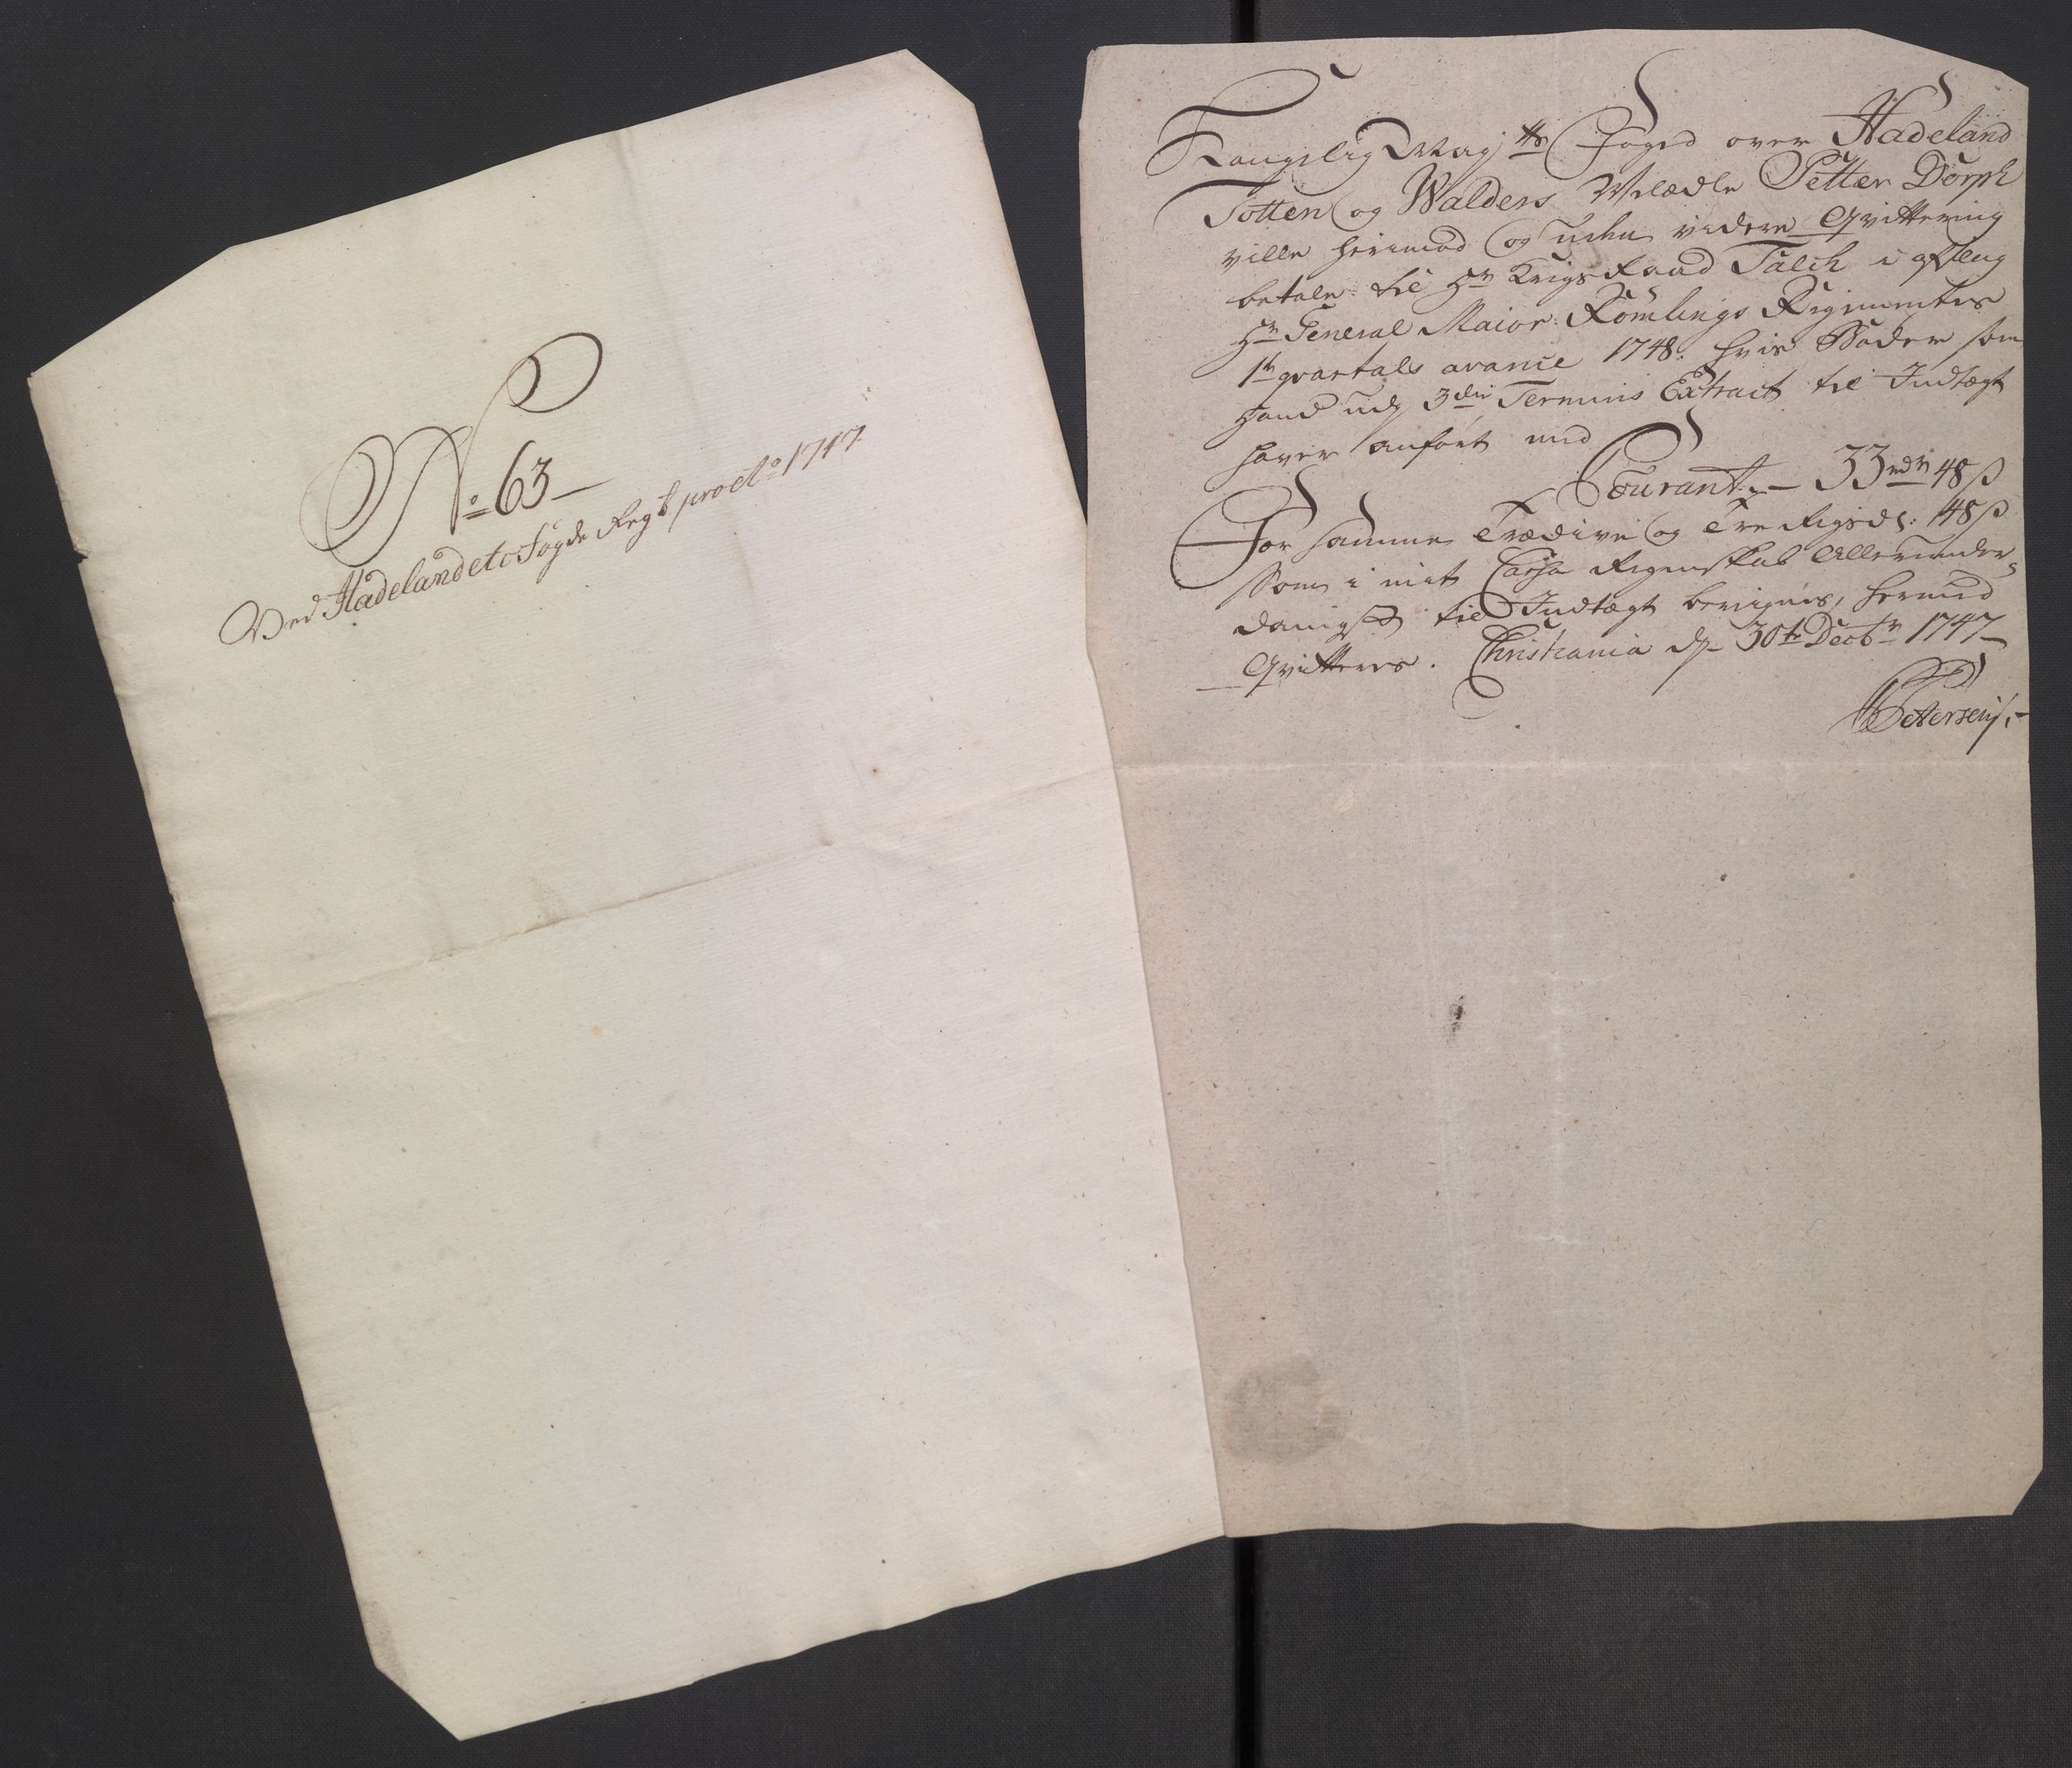 No 63
Ved Hadeland etc Fogde Regsk pro Ao 1747
Kongelig May:ts Foged over Hadeland
Totten og Walders Velædle Petter Dorph
ville herimod og uden videre Qvittering
betale til Hr Krigs Raad Falck i afslag
Hr General Maior Römlings Regimentes
1te qvartals avance 1748: hvis Bøder som
Hand udj 3die Termins Extract til Indtægt
haver anført med
Courant — 33 rdr 48 ß
For samme Trædive og Tre Rigsdr: 48 ß
Som i mit Cassa Regenskab Allerunder-
danigst til Indtægt beregnes, hermed
Qvitteres. Christiania d 30te Decbr 1747
Petersen